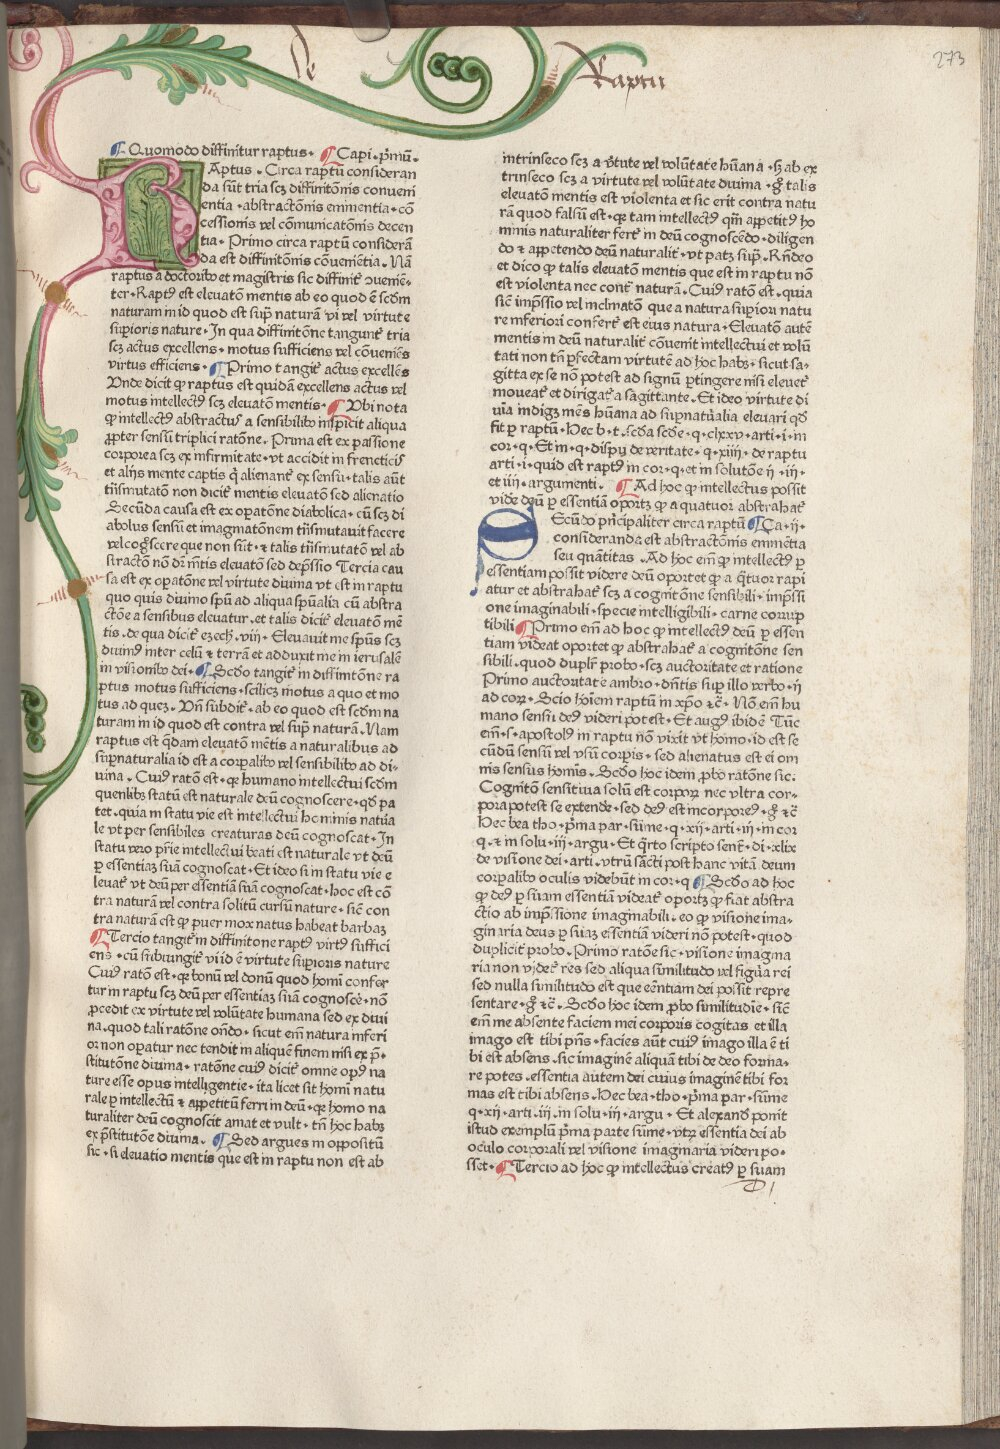 De
Raptu
273
Quomodo diffinitur raptus. Capi. pͥmū.
RAptus. Circa raptū consideran
da sūt tria scꝫ diffinitōnis conueni
entia. abstractōnis eminentia. cō
cessionis vel cōmunicatōnis decen
tia. Primo circa raptū considerā
da est diffinitōnis cōuenientia. Nā
raptus a doctoribꝰ et magistris sic diffinitʳ ↄuenien̄
ter. Raptꝰ est eleuatō mentis ab eo quod ē scd̄m
naturam in id quod est supͣ naturā vi vel virtute
supioris nature. In qua diffinitōne tangunt͛ tria
scꝫ actus excellens. motus sufficiens vel cōueniēs
virtus efficiens. Primo tangit͛ actus excellēs
Vnde dicit ꝙ raptus est quidā excellens actus vel
motus intellectꝰ scꝫ eleuatō mentis. Vbi nota
ꝙ intellectꝰ abstractus a sensibilibꝰ inspicit aliqua
ꝓpter sensū triplici ratōne. Prima est ex passione
corporea scꝫ ex infirmitate. vt accidit in freneticis
et aliis mente captis q̇ alienant͛ ex sensu. talis aūt
trāsmutatō non dicit͛ mentis eleuatō sed alienatio
Secūda causa est ex oꝑatōne diabolica. cū scꝫ di
abolus sensū et imaginatōnem trāsmutauit facere
vel cog̅scere que non sūt. ⁊ talis trāsmutatō vel ab
stractō nō dr̄ mētis eleuatō sed dep̄ssio Tercia cau
sa est ex oꝑatōne vel virtute diuina vt est in raptu
quo quis diuino spū ad aliqua spūalia cū abstra
ctōe a sensibus eleuatur. et talis dicit͛ eleuatō mē
tis. de qua dicit͛ ezech. viij. Eleuauit me spūs scꝫ
diuinꝰ inter celū ⁊ terrā et adduxit me in ierusalē
in visionibꝰ dei. Scd̄o tangit͛ in diffinitōne ra
ptus motus sufficiens. scilicꝫ motus a quo et mo
tus ad quez. Vn̄ subdit͛. ab eo quod est scd̄m na
turam in id quod est contra vel supͣ naturā. Nam
raptus est q̄dam eleuatō mētis a naturalibus ad
supͣnaturalia id est a corꝑalibꝰ vel sensibilibꝰ ad di-
uina. Cuiꝰ ratō est. qꝛ humano intellectui scd̄m
quenlibꝫ statū est naturale deū cognoscere. qd̄ pa
tet. quia in statu vie est intellectui hominis natūa
le vt per sensibiles creaturas deū cognoscat. In
statu vero pr̄ie intellectui beati est naturale vt deū
ꝑ essentiaꝫ suā cognoscat. Et ideo si in statu vie e
leuat͛ vt deū per essentiā suā cognoscat. hoc est cō
tra naturā vel contra solitū cursū nature. sic̄ con
tra naturā est ꝙ puer mox natus habeat barbaꝫ
Tercio tangit͛ in diffinitone raptꝰ virtꝰ suffici
ens. cū subiungit͛ vi id ē virtute supioris nature
Cuiꝰ ratō est. qꝛ bonū vel donū quod homi confer
tur in raptu scꝫ deū per essentiaꝫ suā cognoscē. nō
ꝓcedit ex virtute vel volūtate humana sed ex diui
na. quod tali ratōne on̄do. sicut em̄ natura inferi
or non oꝑatur nec tendit in aliquē finem nisi ex p̄.
stitutōne diuina. ratōne cuiꝰ dicit͛ omne opꝰ na
ture esse opus intelligentie. ita licet sit homi natu
rale ꝑ intellectū ⁊ appetitū ferri in deū. qꝛ homo na
turaliter deū cognoscit amat et vult. tn̄ hoc habꝫ
ex p̄stitutōe diuina. Sed argues in oppositū
sic. si eleuatio mentis que est in raptu non est ab
intrinseco scꝫ a v̄tute vel volūtate hūana. sꝫ ab ex
trinseco scꝫ a virtute vel volūtate diuina. g̊ talis
eleuatō mentis est violenta et sic erit contra natu
rā quod falsū est. qꝛ tam intellectꝰ qm̄ appetitꝰ ho
minis naturaliter fert͛ in deū cognoscēdo. diligen
do ⁊ appetendo deū naturalit͛. vt patꝫ supͣ. Rn̄deo
et dico ꝙ talis eleuatō mentis que est in raptu nō
est violenta nec cont͛ naturā. Cuiꝰ ratō est. quia
sic̄ imp̄ssio vel inclinatō que a natura supior natu
re inferiori confert͛ est eius natura. Eleuatō autē
mentis in deū naturalit͛ cōuenit intellectui et volū
tati non tn̄ ꝑfectam virtutē ad hoc habꝫ. sicut sa-
gitta ex se nō potest ad signū ꝑtingere nisi eleuet͛
moueat͛ et dirigat͛ a sagittante. Et ideo virtute di
uīa indigꝫ mēs hūana ad supͣnatūalia eleuari qd̄
fit ꝑ raptū. Hec b. t. scd̄a scd̄e. q. clxxv. arti. i. in
cor. q. Et in. q. disputꝭ de veritate. q. xiij. de raptu
arti. i. quid est raptꝰ in cor. q. et in solutōe ij. iij.
et iiij. argumenti. Ad hoc ꝙ intellectus possit
vide deū ꝑ essentiā oportꝫ ꝙ a quatuor abstrahat͛
SEcūdo pn̄cipaliter circa raptū Ca. ij.
consideranda est abstractōnis eminētia
seu quātitas. Ad hoc em̄ ꝙ intellectꝰ ꝑ
essentiam possit videre deū oportet ꝙ a q̄tuor rapi
atur et abstrahat͛ scꝫ a cognitōne sensibili. imp̄ssi
one imaginabili. specie intelligibili. carne corrup
tibili Primo em̄ ad hoc ꝙ intellectꝰ deū ꝑ essen
tiam videat oportet ꝙ abstrahat͛ a cognitōne sen
sibili. quod duplr̄ probo. scꝫ auctoritate et ratione
Primo auctoritate ambro. dn̄tis suꝑ illo verbo. ij
ad coꝝ. Scio hoīem raptū in xp̄o ⁊c̄. Nō em̄ hu
mano sensu deꝰ videri potest. Et augꝰ ibidē Tūc
em̄. s. apostolꝰ in raptu nō vixit vt homo. id est se
cūdū sensū vel vsū corꝑis. sed alienatus est ei om
nis sensus homis. Scd̄o hoc idem ꝓbo ratōne sic.
Cognitō sensitiua solū est corpoꝝ nec vltra cor-
pora potest se extende. sed deꝰ est incorporeꝰ. g̊ ⁊c̄
Hec bea tho. pͥma par. sūme. q. xij. arti. iij. in cor
q. ⁊ in solu. iij. argu. Et q̄rto scripto senē. di. xlix
de visione dei. arti. vtrū sācti post hanc vitā deum
corꝑalibꝰ oculis videbūt in cor. q Scd̄o ad hoc
ꝙ deꝰ ꝑ suam essentiā videat͛ oportꝫ ꝙ fiat abstra
ctio ab imp̄ssione imaginabili. eo ꝙ visione ima-
ginaria deus ꝑ suaꝫ essentiā videri nō potest. quod
dupliciter probo. Primo ratōe sic. visione imagina
ria non videt͛ res sed aliqua similitudo vel figūa rei
sed nulla similitudo est que eēntiam dei possit repre
sentare. g̊ ⁊c̄. Scd̄o hoc idem ꝓbo similitudīe. sic̄
em̄ me absente faciem mei corporis cogitas et illa
imago est tibi pn̄s. facies aūt cuiꝰ imago illa ē ti
bi est absens. sic imaginē aliquā tibi de deo forma-
re potes. essentia autem dei cuius imaginē tibi for
mas est tibi absens. Hec bea. tho. pͥma par. sūme
q. xij. arti. iij. in solu. iij. argu. Et alexandꝰ ponit
istud exemplū pͥma parte sūme. vtꝝ essentia dei ab
oculo corporali vel visione imaginaria videri po-
sset. Tercio ad hoc ꝙ intellectus creatꝰ ꝑ suam